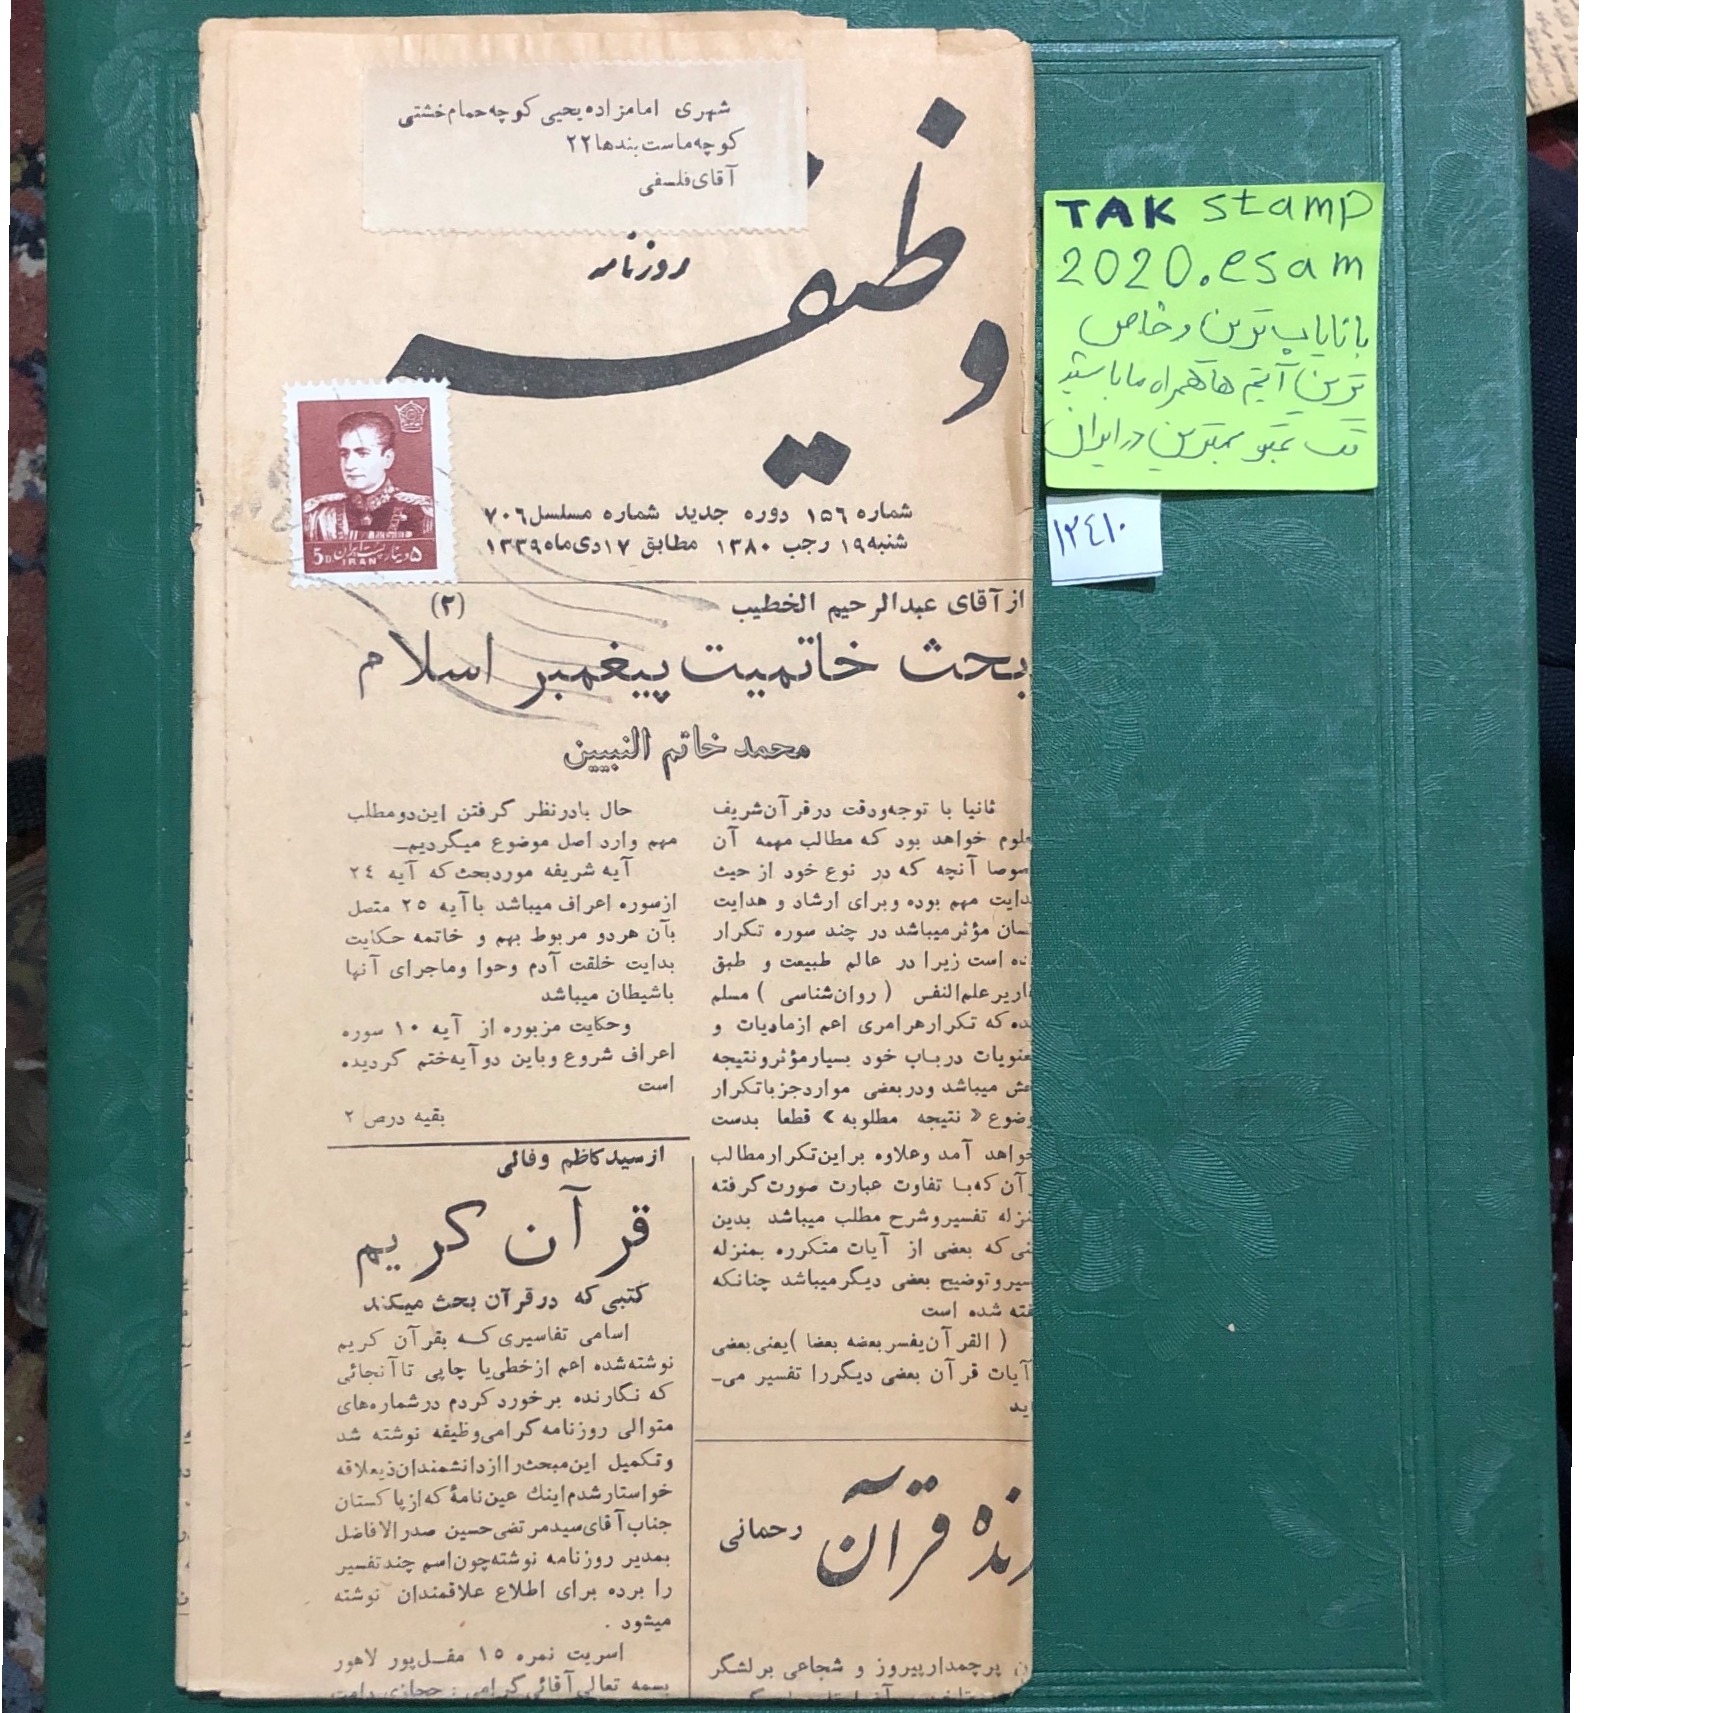 شهری امامزاده یحیی کوچه حمام خشتی
کوچه ماست بندها ۲۲
آقای فلسفی
روزنامه
وظیفه
۵ دینار پست ایران
5D. IRAN
شماره ۱۵۶ دوره جدید شماره مسلسل ۷۰۶
شنبه ۱۹ رجب ۱۳۸۰ مطابق ۱۷ دی ماه ۱۳۳۹
از آقای عبدالرحیم الخطیب (۲)
بحث خاتمیت پیغمبر اسلام
محمد خاتم النبیین
ثانیا با توجه و دقت در قرآن شریف
خواهد بود که مطالب مهمه آن
آنچه که در نوع خود از حیث
مهم بوده و برای ارشاد و هدایت
مؤثر میباشد در چند سوره تکرار
است زیرا در عالم طبیعت و طبق
علم النفس (روان شناسی) مسلم
که تکرار هر امری اعم از مادیات و
در باب خود بسیار مؤثر و نتیجه
میباشد و در بعضی موارد جز با تکرار
«نتیجه مطلوبه» قطعا بدست
آمد و علاوه بر این تکرار مطالب
که با تفاوت عبارت صورت گرفته
تفسیر و شرح مطلب میباشد بدین
که بعضی از آیات متکرره بمنزله
و توضیح بعضی دیگر میباشد چنانکه
شده است
(القرآن یفسر بعضه بعضا) یعنی بعضی
آیات قرآن بعضی دیگر را تفسیر می-
حال با در نظر گرفتن این دو مطلب
مهم وارد اصل موضوع میگردیم-
آیه شریفه مورد بحث که آیه ۲۴
از سوره اعراف میباشد با آیه ۲۵ متصل
بآن هر دو مربوط بهم و خاتمه حکایت
بدایت خلقت آدم و حوا و ماجرای آنها
با شیطان میباشد
و حکایت مزبوره از آیه ۱۰ سوره
اعراف شروع و باین دو آیه ختم گردیده
است
بقیه در ص ۲
از سید کاظم وفالی
قرآن کریم
کتبی که در قرآن بحث میکند
اسامی تفاسیری که بقرآن کریم
نوشته شده اعم از خطی یا چاپی تا آنجائی
که نگارنده برخورد کردم در شماره های
متوالی روزنامه گرامی وظیفه نوشته شد
و تکمیل این مبحث را از دانشمندان ذیعلاقه
خواستار شدم اینك عین نامۀ که از پاکستان
جناب آقای سید مرتضی حسین صدر الافاضل
بمدیر روزنامه نوشته چون اسم چند تفسیر
را برده برای اطلاع علاقمندان نوشته
میشود .
اسریت نمره ۱۵ مغل پور لاهور
بسمه تعالی آقائی گرامی : حجازی دامت
قرآن
رحمانی
پرچمدار پیروز و شجاعی بر لشگر
TAK stamp
2020.esam
با نایاب ترین و خاص
ترین آیتم ها همراه ما باشید
تک تمبر بهترین در ایران
۱۲۴۱۰